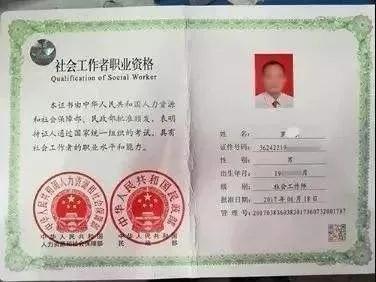 社会工作者职业资格
Qualification of Social Worker
本证书由中华人民共和国人力资源
和社会保障部、民政部批准颁发，表
明持证人通过国家统一组织的考试，具有
社会工作者的职业水平和能力。
中华人民共和国人力资源和社会保障部
中华人民共和国民政部
中华人民共和国
人力资源和社会保障部
中华人民共和国
民政部
姓名： 罗
证件号码： 36242219
性别： 男
出生年月： 19
级别： 社会工作师
批准日期： 2017年06月18日
管理号：